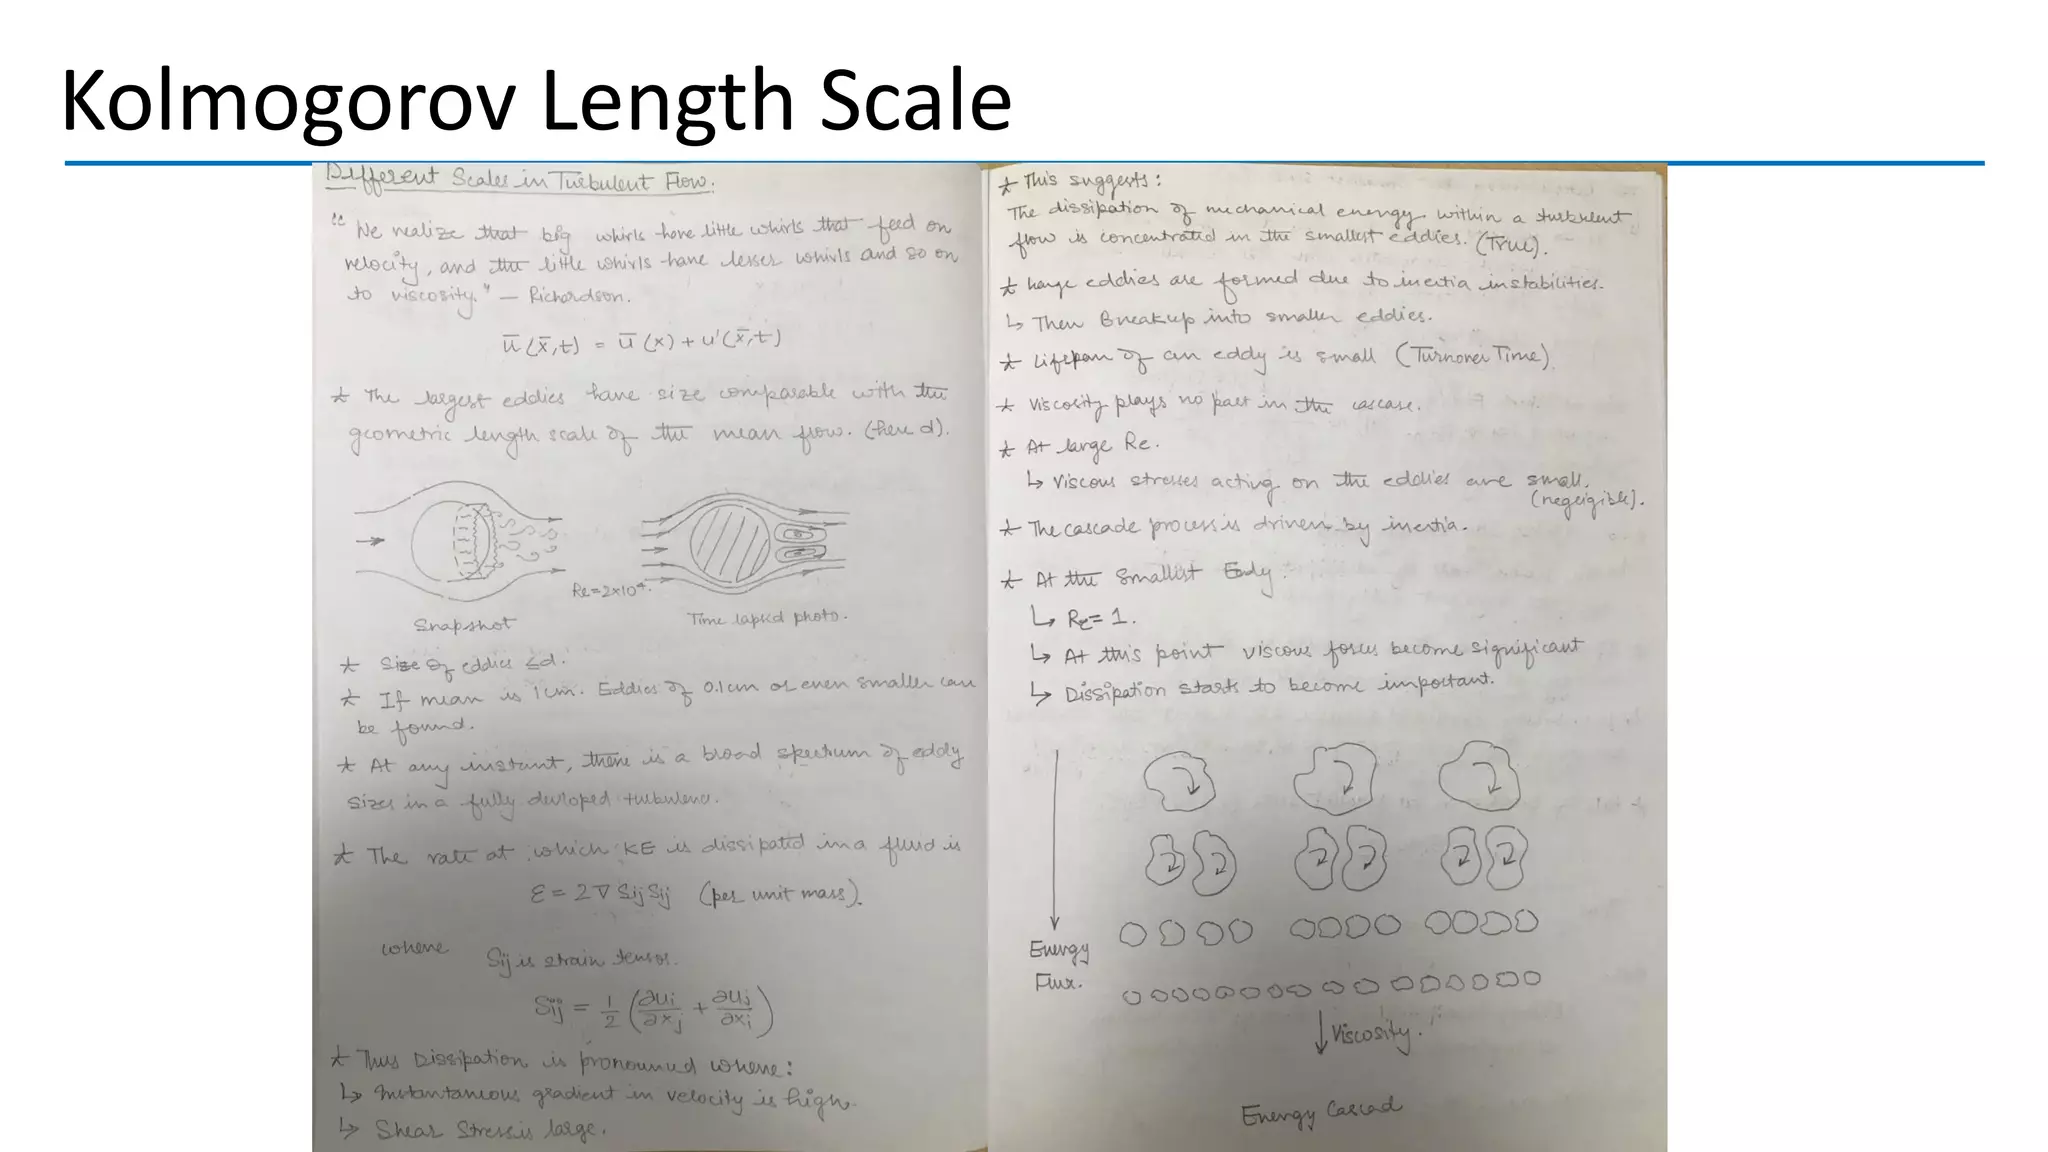 Kolmogorov Length Scale
Different Scales in Turbulent Flow.
"We realize that big whirls have little whirls that feed on
velocity, and the little whirls have lesser whirls and so on
to viscosity." — Richardson.
ū(x̄,t) = ū(x) + u'(x̄,t)
* The largest eddies have size comparable with the
geometric length scale of the mean flow. (here d).
Re=2×10⁴.
Snapshot
Time lapsed photo.
* Size of eddies ≤d.
* If mean is 1cm. Eddies of 0.1cm or even smaller can
be found.
* At any instant, there is a broad spectrum of eddy
sizes in a fully devloped turbulence.
* The rate at which KE is dissipated in a fluid is
ε = 2 ∇ Sij Sij (per unit mass).
where Sij is strain tensor.
Sij = 1/2 (∂ui/∂xj + ∂uj/∂xi)
* Thus Dissipation is pronounced where:
↳ Instantaneous gradient in velocity is high.
↳ Shear Stress is large.
* This suggests:
The dissipation of mechanical energy within a turbulent
flow is concentrated in the smallest eddies. (True).
* Large eddies are formed due to inertia instabilities.
↳ Then Breakup into smaller eddies.
* Lifespan of an eddy is small (Turnover Time).
* Viscosity plays no part in the cascase.
* At large Re.
↳ Viscous stresses acting on the eddies are small.
(negligible).
* The cascade process is driven by inertia.
* At the Smallest Eddy.
↳ Re = 1.
↳ At this point viscous forces become significant
↳ Dissipation starts to become important.
Energy
Flux.
Viscosity.
Energy Cascad